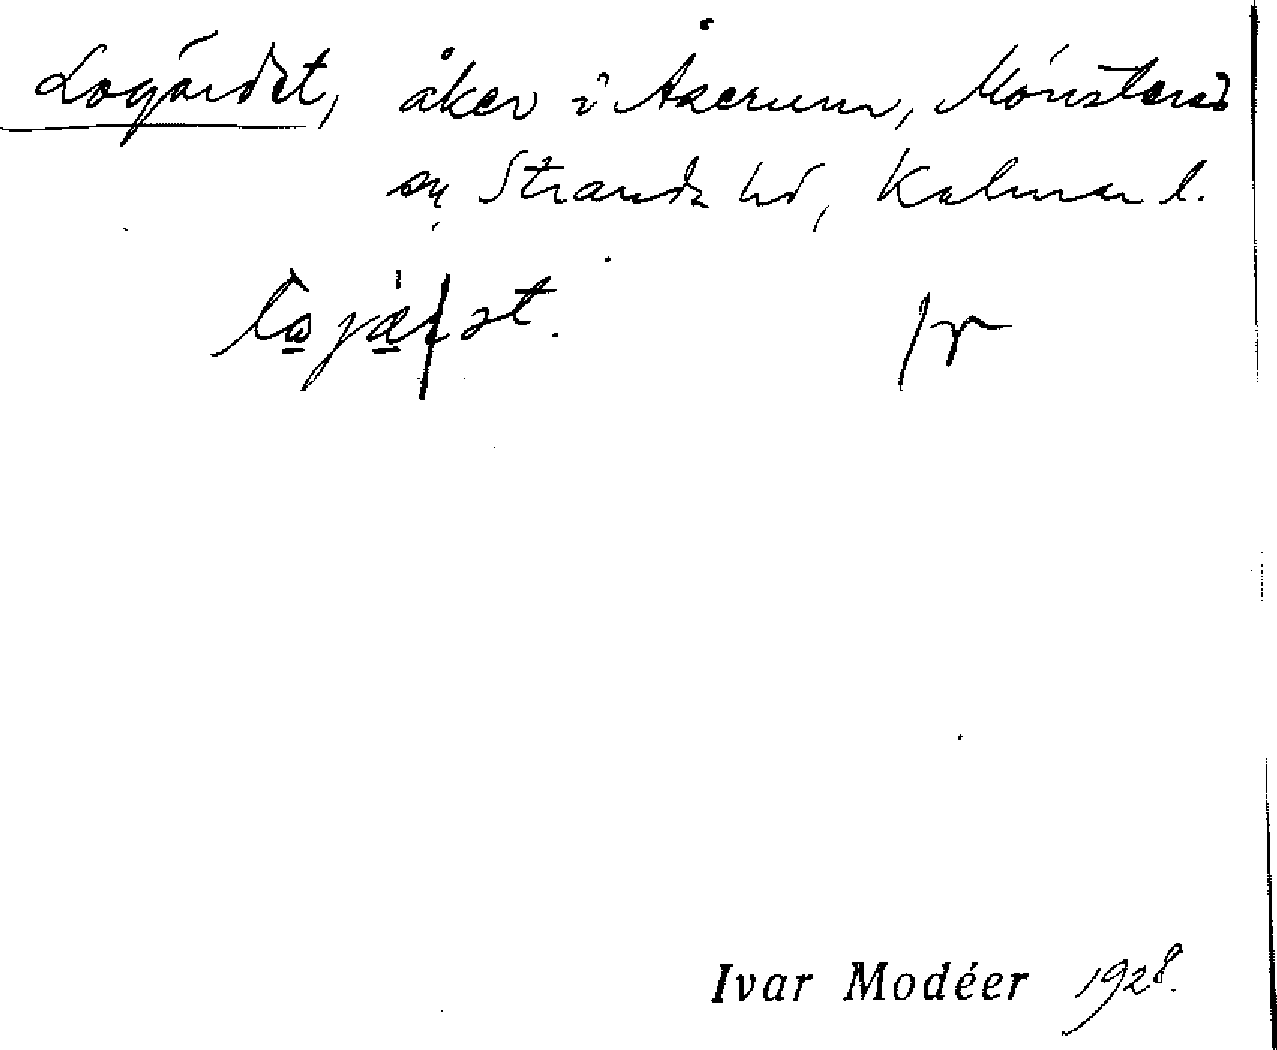 Logärdet, åker i Åkerum, Mönsterås
sn, Stranda hd, Kalmar l.
Ivar Modéer 1928.